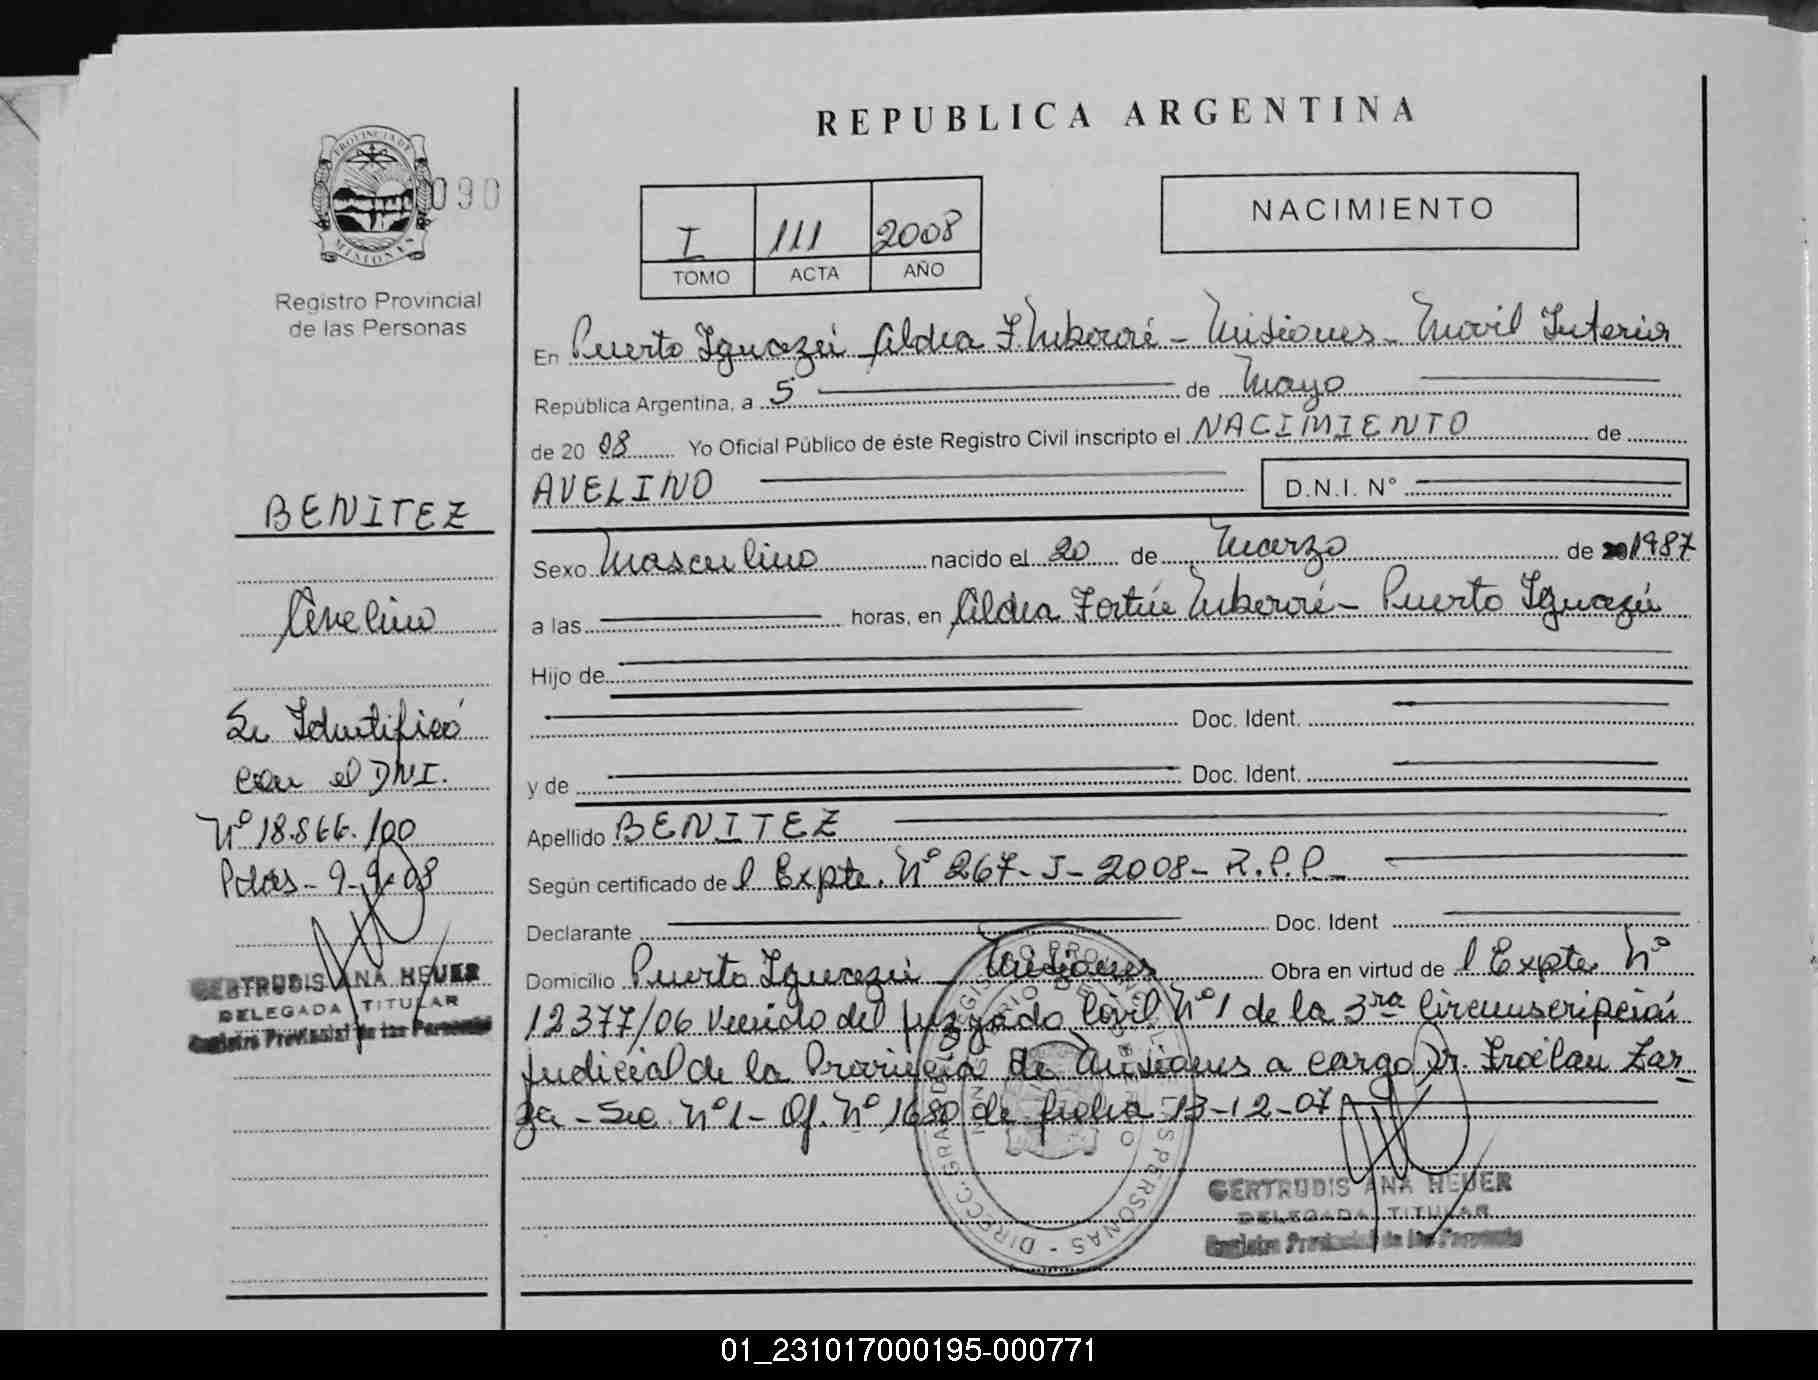 REPUBLICA ARGENTINA
PROVINCIA DE
MISIONES
090
Registro Provincial
de las Personas
I 111 2008
TOMO ACTA AÑO
NACIMIENTO
En Puerto Iguazú Aldea F. Mbororé - Misiones - Movil Interior
República Argentina, a 5 de Mayo
de 20 08 Yo Oficial Público de éste Registro Civil inscripto el NACIMIENTO de
AVELINO D.N.I. N°
Sexo Masculino nacido el 20 de Marzo de 1987
a las horas, en Aldea Fortín Mbororé - Puerto Iguazú
Hijo de
Doc. Ident.
y de Doc. Ident.
Apellido BENITEZ
Según certificado de l Expte. N° 267-J-2008-R.P.P.
Declarante Doc. Ident
Domicilio Puerto Iguazú Misiones Obra en virtud de l Expte N°
12377/06 Venido del Juzgado Civil N°1 de la 3ra Circunscripción
Judicial de la Provincia de Misiones a cargo Dr. Froilan Zar-
za - Sec. N°1 - Of. N° 1680 de fecha 13-12-07
GERTRUDIS ANA HEUER
DELEGADA TITULAR
Registro Provincial de las Personas
BENITEZ
Avelino
Se Identificó
con el DNI.
N° 18.866.100
Pdas - 9-9-08
GERTRUDIS ANA HEUER
DELEGADA TITULAR
Registro Provincial de las Personas
01_231017000195-000771